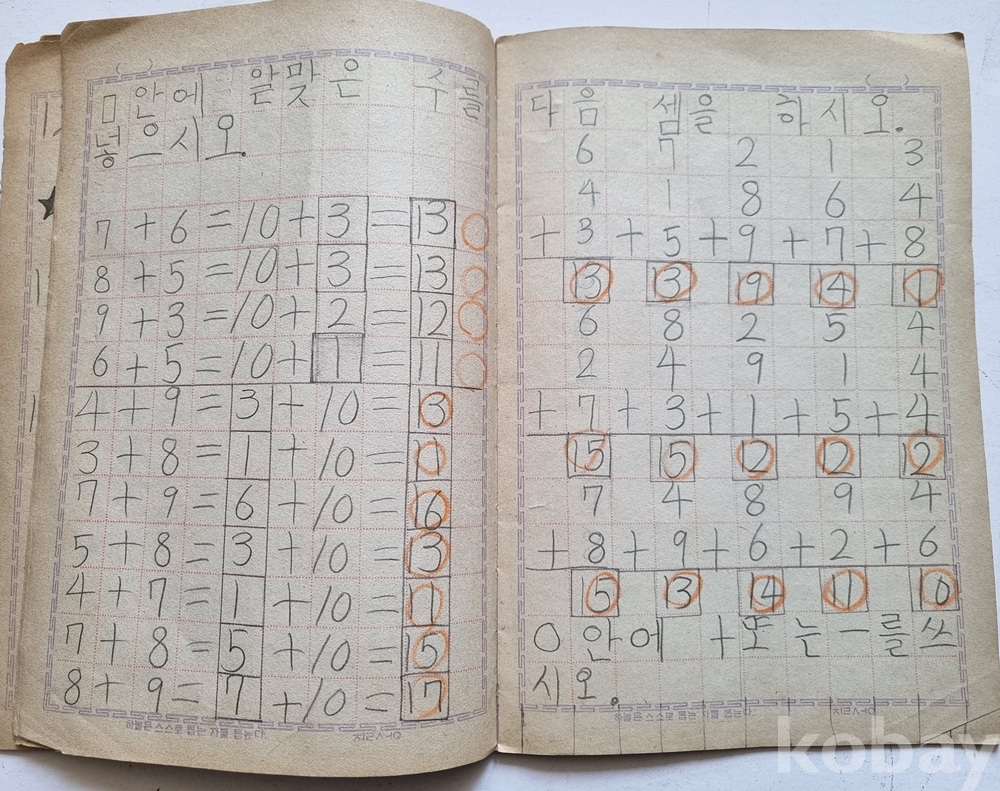 □안에 알맞은 수를
넣으시오.
7+6=10+3=13
8+5=10+3=13
9+3=10+2=12
6+5=10+1=11
4+9=3+10=13
3+8=1+10=11
7+9=6+10=16
5+8=3+10=13
4+7=1+10=11
7+8=5+10=15
8+9=7+10=17
하늘은 스스로 돕는 자를 돕는다.
다음 셈을 하시오.
6 7 2 1 3
4 1 8 6 4
+3 +5 +9 +7 +8
13 13 19 14
6 8 2 5 4
2 4 9 1 4
+7 +3 +1 +5 +4
15 15 12 12 12
7 4 8 9 4
+8 +9 +6 +2 +6
15 13 14 11 10
○안에 +또는 －를쓰
시오.
kobay